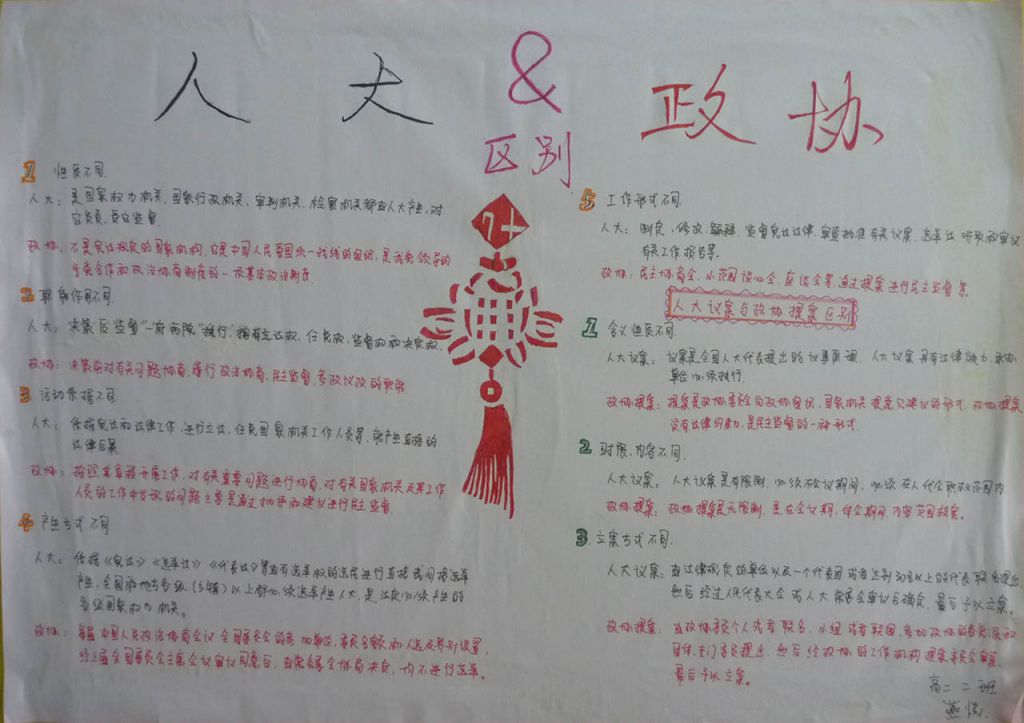 人大 & 政协
区别
1 性质不同
人大：是国家权力机关，国家行政机关、审判机关、检察机关都由人大产生，对
它负责，受它监督
政协：不是宪法规定的国家机构，它是中国人民爱国统一战线的组织，是我党领导的
多党合作和政治协商制度的一项基本政治制度
2 职能作用不同
人大：决策后监督"一府两院"执行，拥有立法权、任免权、监督权和决定权
政协：决策前对有关问题协商，履行政治协商，民主监督，参政议政的职能
3 活动依据不同
人大：依据宪法和法律工作，进行立法，任免国家机关工作人员等，会产生直接的
法律后果
政协：按照其章程开展工作，对有关重要问题进行协商，对有关国家机关及其工作
人员的工作中的问题主要是通过批评和建议进行民主监督
4 产生方式不同
人大：依据《宪法》《选举法》《代表法》等由有选举权的选民进行直接或间接选举
产生，全国和地方各级（乡镇）以上都必须选举产生人大，是法定必须产生的
各级国家权力机关。
政协：每届中国人民政治协商会议全国委员会的参加单位，委员名额和人选及界别设置，
经上届全国委员会主席会议审议同意后，由常务委员会协商决定，均不进行选举。
5 工作形式不同
人大：制定，修改，解释，监督宪法法律，审查批准有关议案，选举法 听取和审议
有关工作报告等
政协：民主协商会，小范围谈心会，座谈会等，通过提案进行民主监督等。
人大议案与政协提案区别
1 含义性质不同
人大议案：议案是全国人大代表提出的议事原词，人大议案具有法律效力，承办
单位必须执行
政协提案：提案是政协委员向政协组织，国家机关提意见建议的形式，政协提案
没有法律约束力，是民主监督的一种形式
2 时限、内容不同
人大议案：人大议案是有限制，必须在会议期间，必须在人代会职权范围内
政协提案：政协提案是无限制，是在会议期，休会期间，内容范围较宽。
3 立案方式不同
人大议案：由法律规定的单位以及一个代表团或者达到30名以上的代表联名提出，
然后经过人民代表大会或人大常委会审议后确定，最后予以立案。
政协提案：由政协委员个人或者联名，小组或者联团，参加政协的各党派
团体，专门委员提出，然后经政协的工作机构提案委员会审查，
最后予以立案。
高二二班